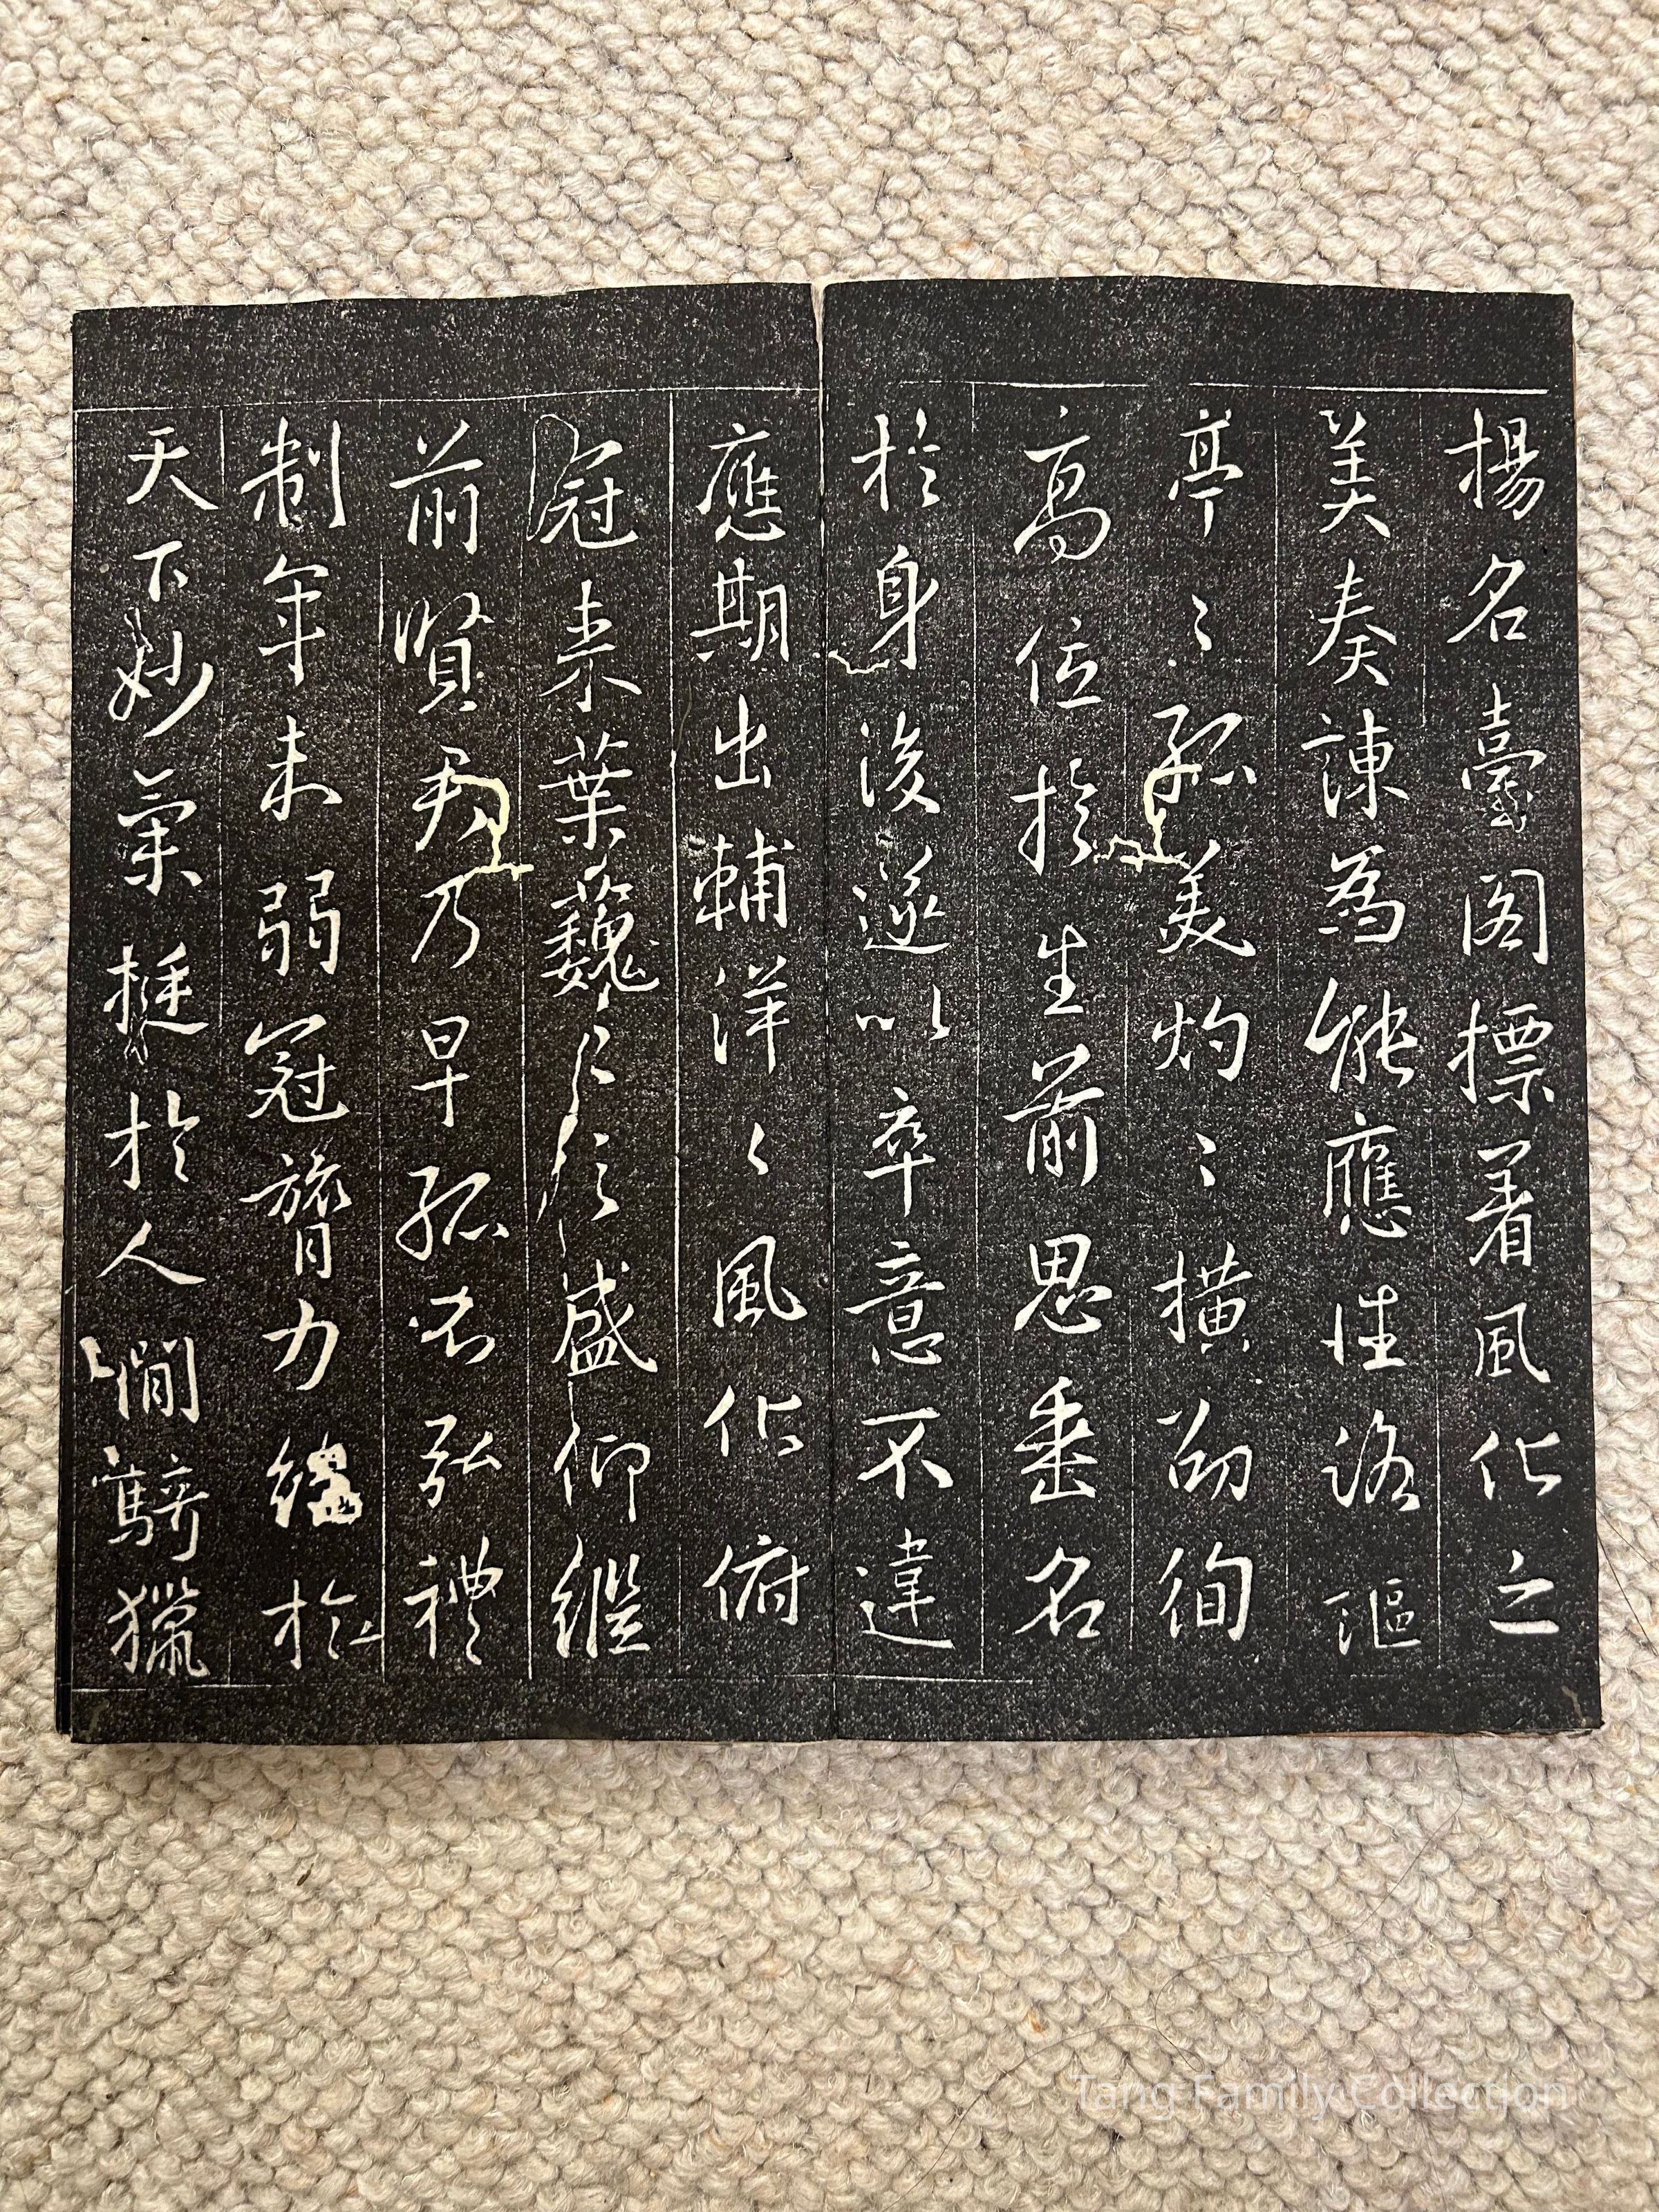 揚名臺閣標著風化之
美奏諫為能應性洛謳
亭〻孤美灼〻橫劭徇
高位於生前思垂名
於身後遂以卒意不違
應期出輔洋〻風化俯
冠来葉巍〻信盛仰縱
前賢君乃早孤弘禮
制年未弱冠膂力絕於
天下妙氣挺於人間騎獵
Tang Family Collection